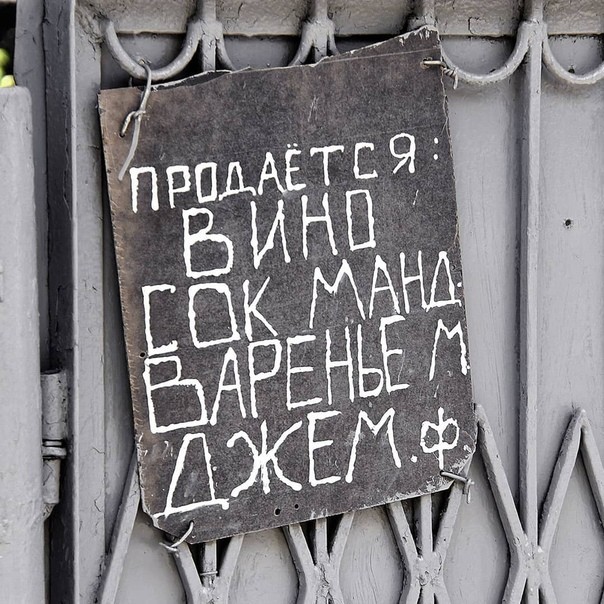 ПРОДАЁТСЯ:
ВИНО
СОК МАНД.
ВАРЕНЬЕ М
ДЖЕМ.Ф